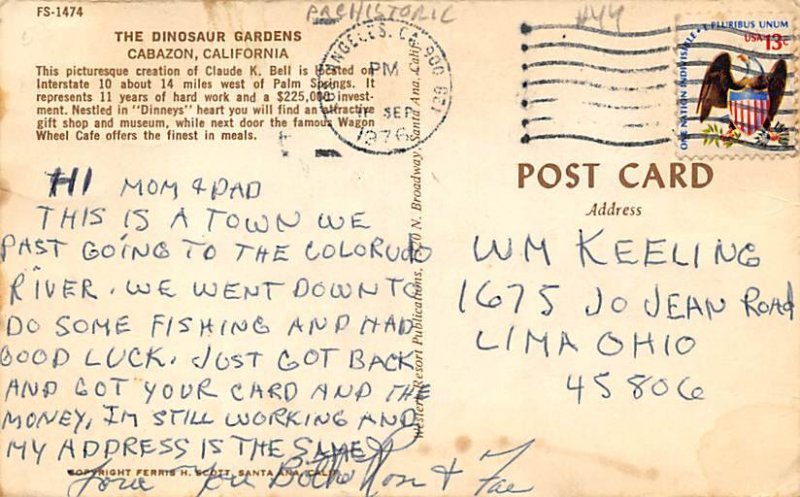 FS-1474
PREHISTORIC
#44
THE DINOSAUR GARDENS
CABAZON, CALIFORNIA
This picturesque creation of Claude K. Bell is located on
Interstate 10 about 14 miles west of Palm Springs. It
represents 11 years of hard work and a $225,000 invest-
ment. Nestled in "Dinneys" heart you will find an attractive
gift shop and museum, while next door the famous Wagon
Wheel Cafe offers the finest in meals.
LOS ANGELES, CA 900
PM
SEP
1976
E PLURIBUS UNUM
USA 13c
ONE NATION INDIVISIBLE
HI MOM & DAD
THIS IS A TOWN WE
PAST GOING TO THE COLORUDO
RIVER. WE WENT DOWN TO
DO SOME FISHING AND HAD
GOOD LUCK. JUST GOT BACK
AND GOT YOUR CARD AND THE
MONEY, IM STILL WORKING AND
MY ADDRESS IS THE SAME
Love You Both Ron & Fae
COPYRIGHT FERRIS H. SCOTT, SANTA ANA, CALIF.
Western Resort Publications, N. Broadway Santa Ana, Calif.
POST CARD
Address
WM KEELING
1675 JO JEAN ROAD
LIMA OHIO
45806